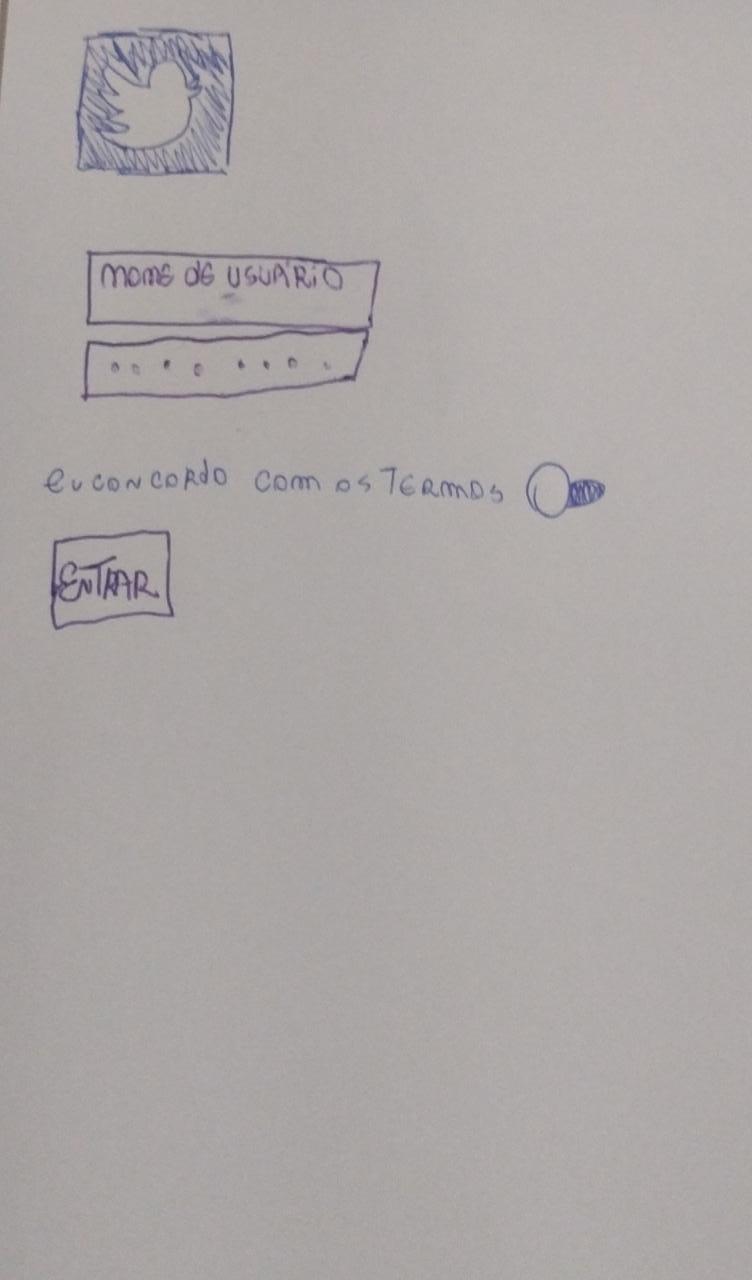 nome de usuário
eu concordo com os Termos
ENTRAR